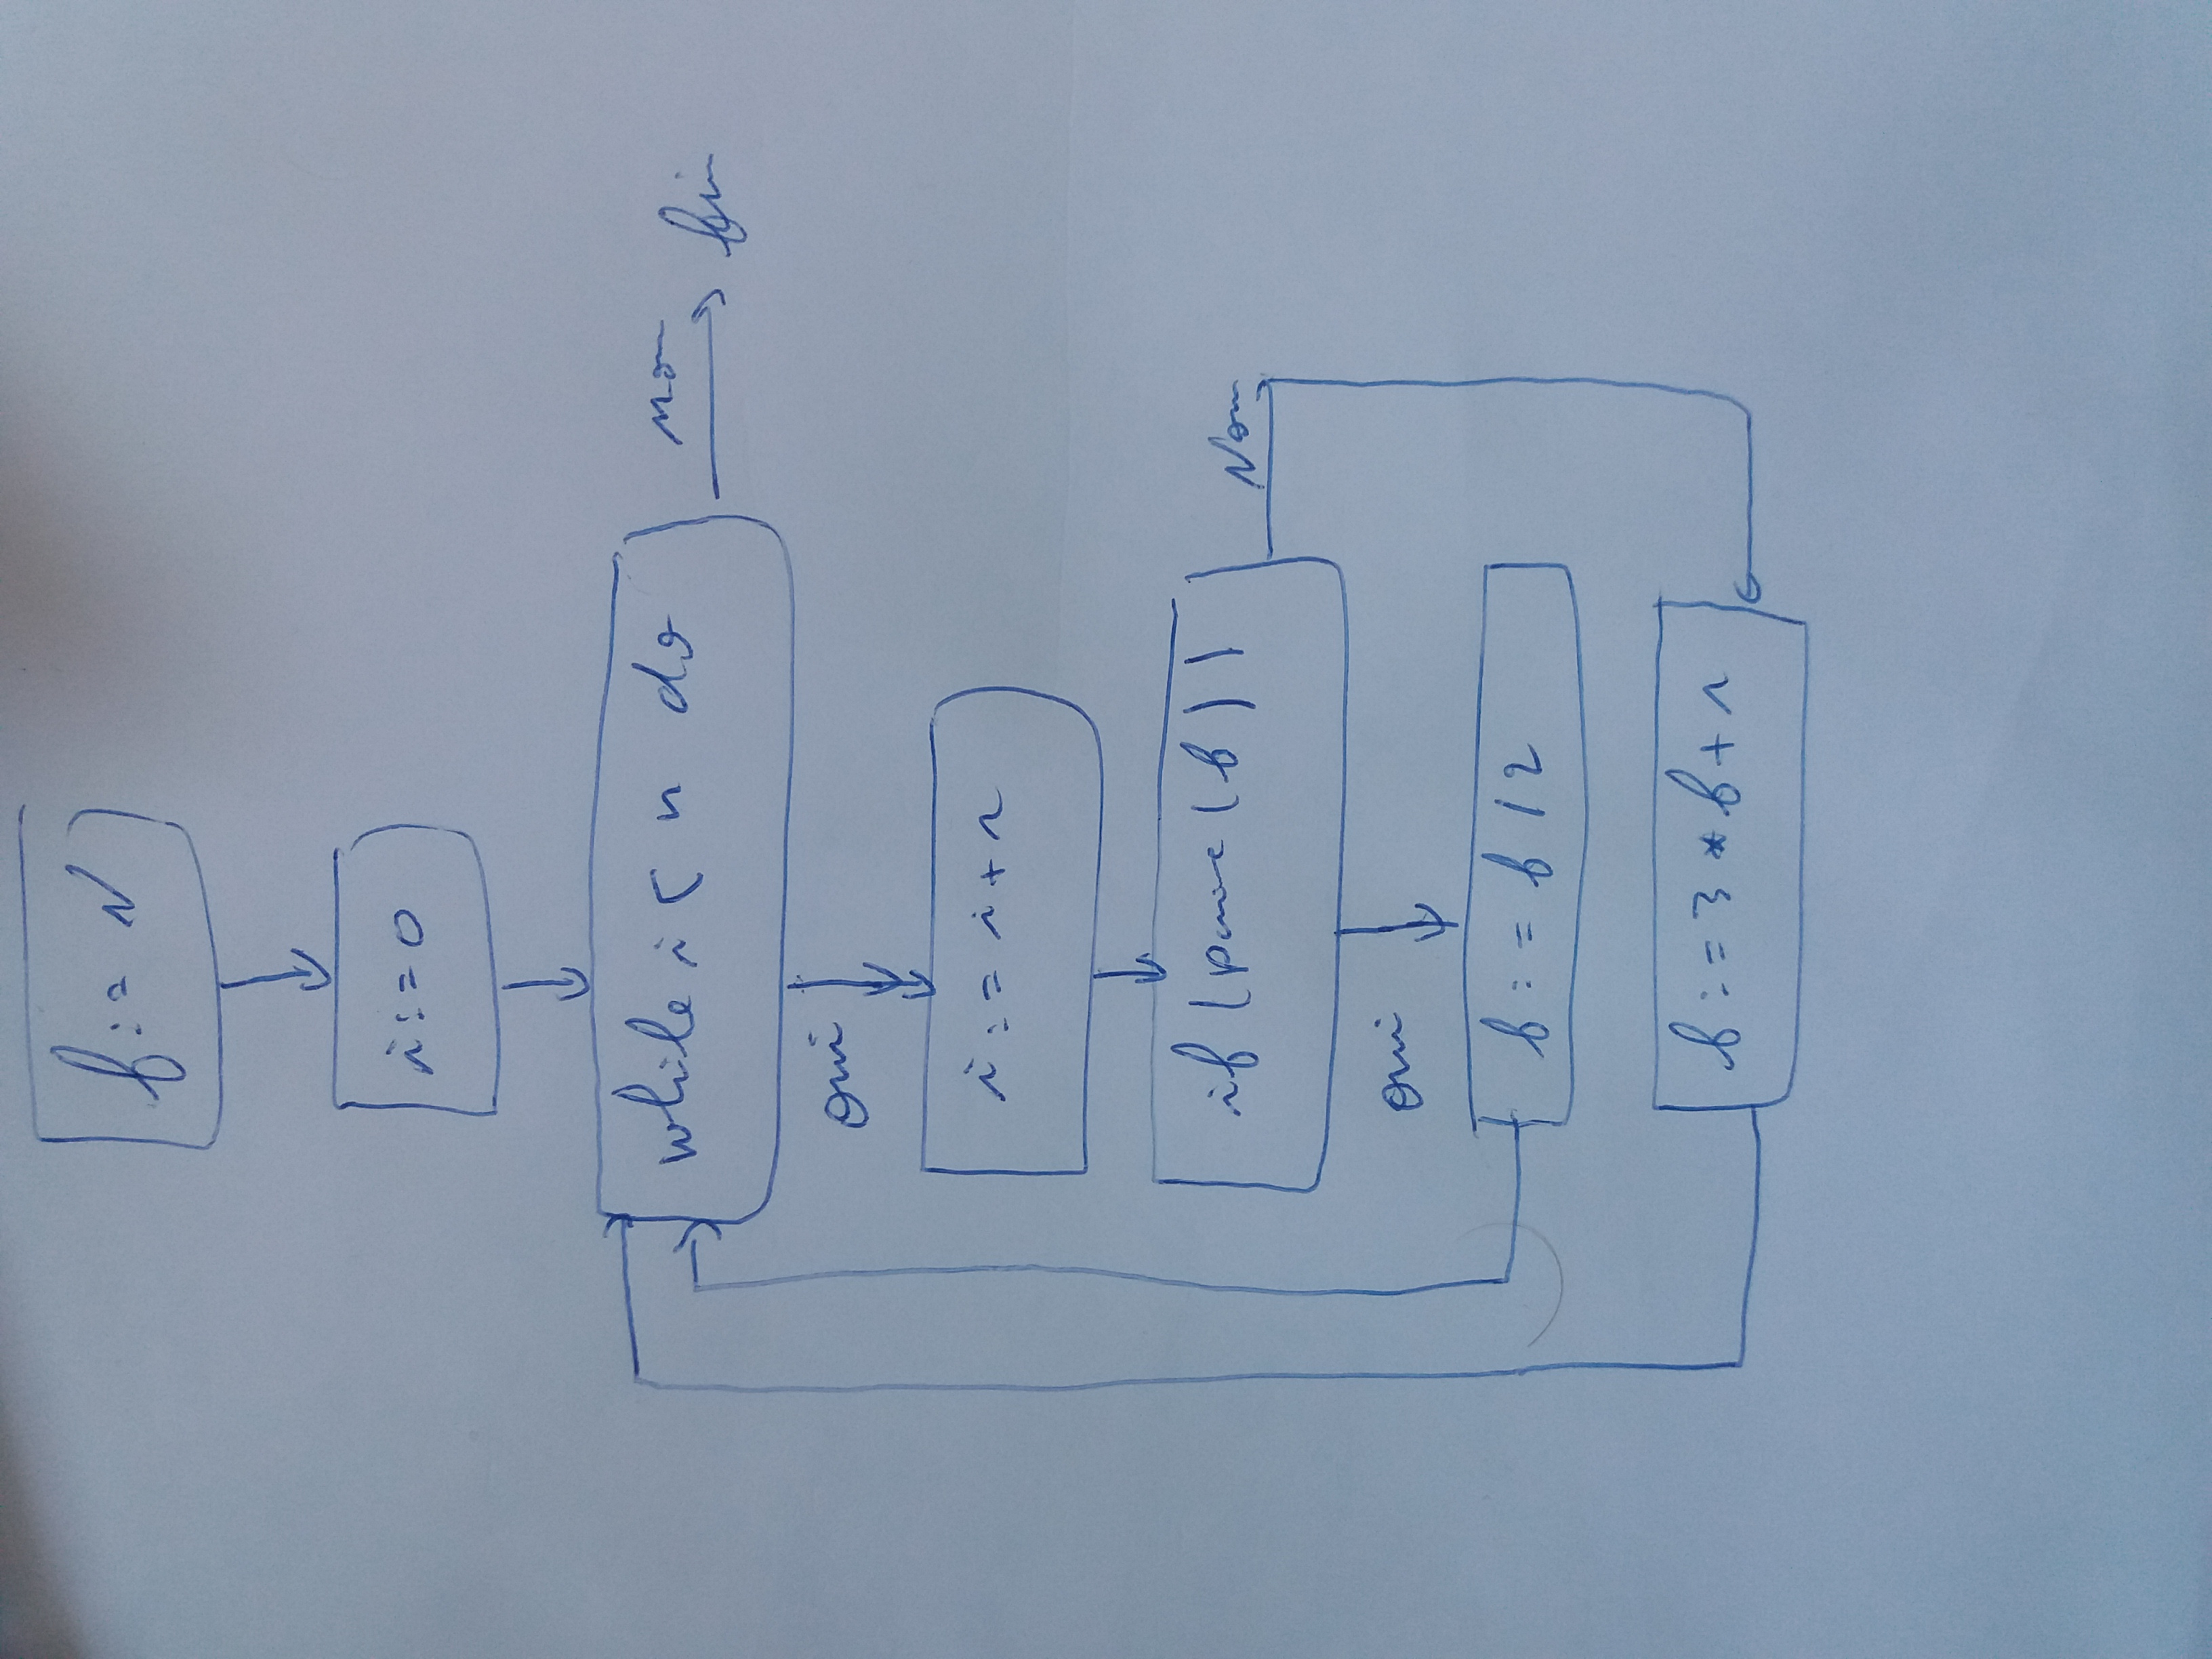 f := N
i := 0
while i < n do
non
fin
oui
i := i + 1
if (paire (f))
Non
oui
f := f / 2
f := 3 * f + 1